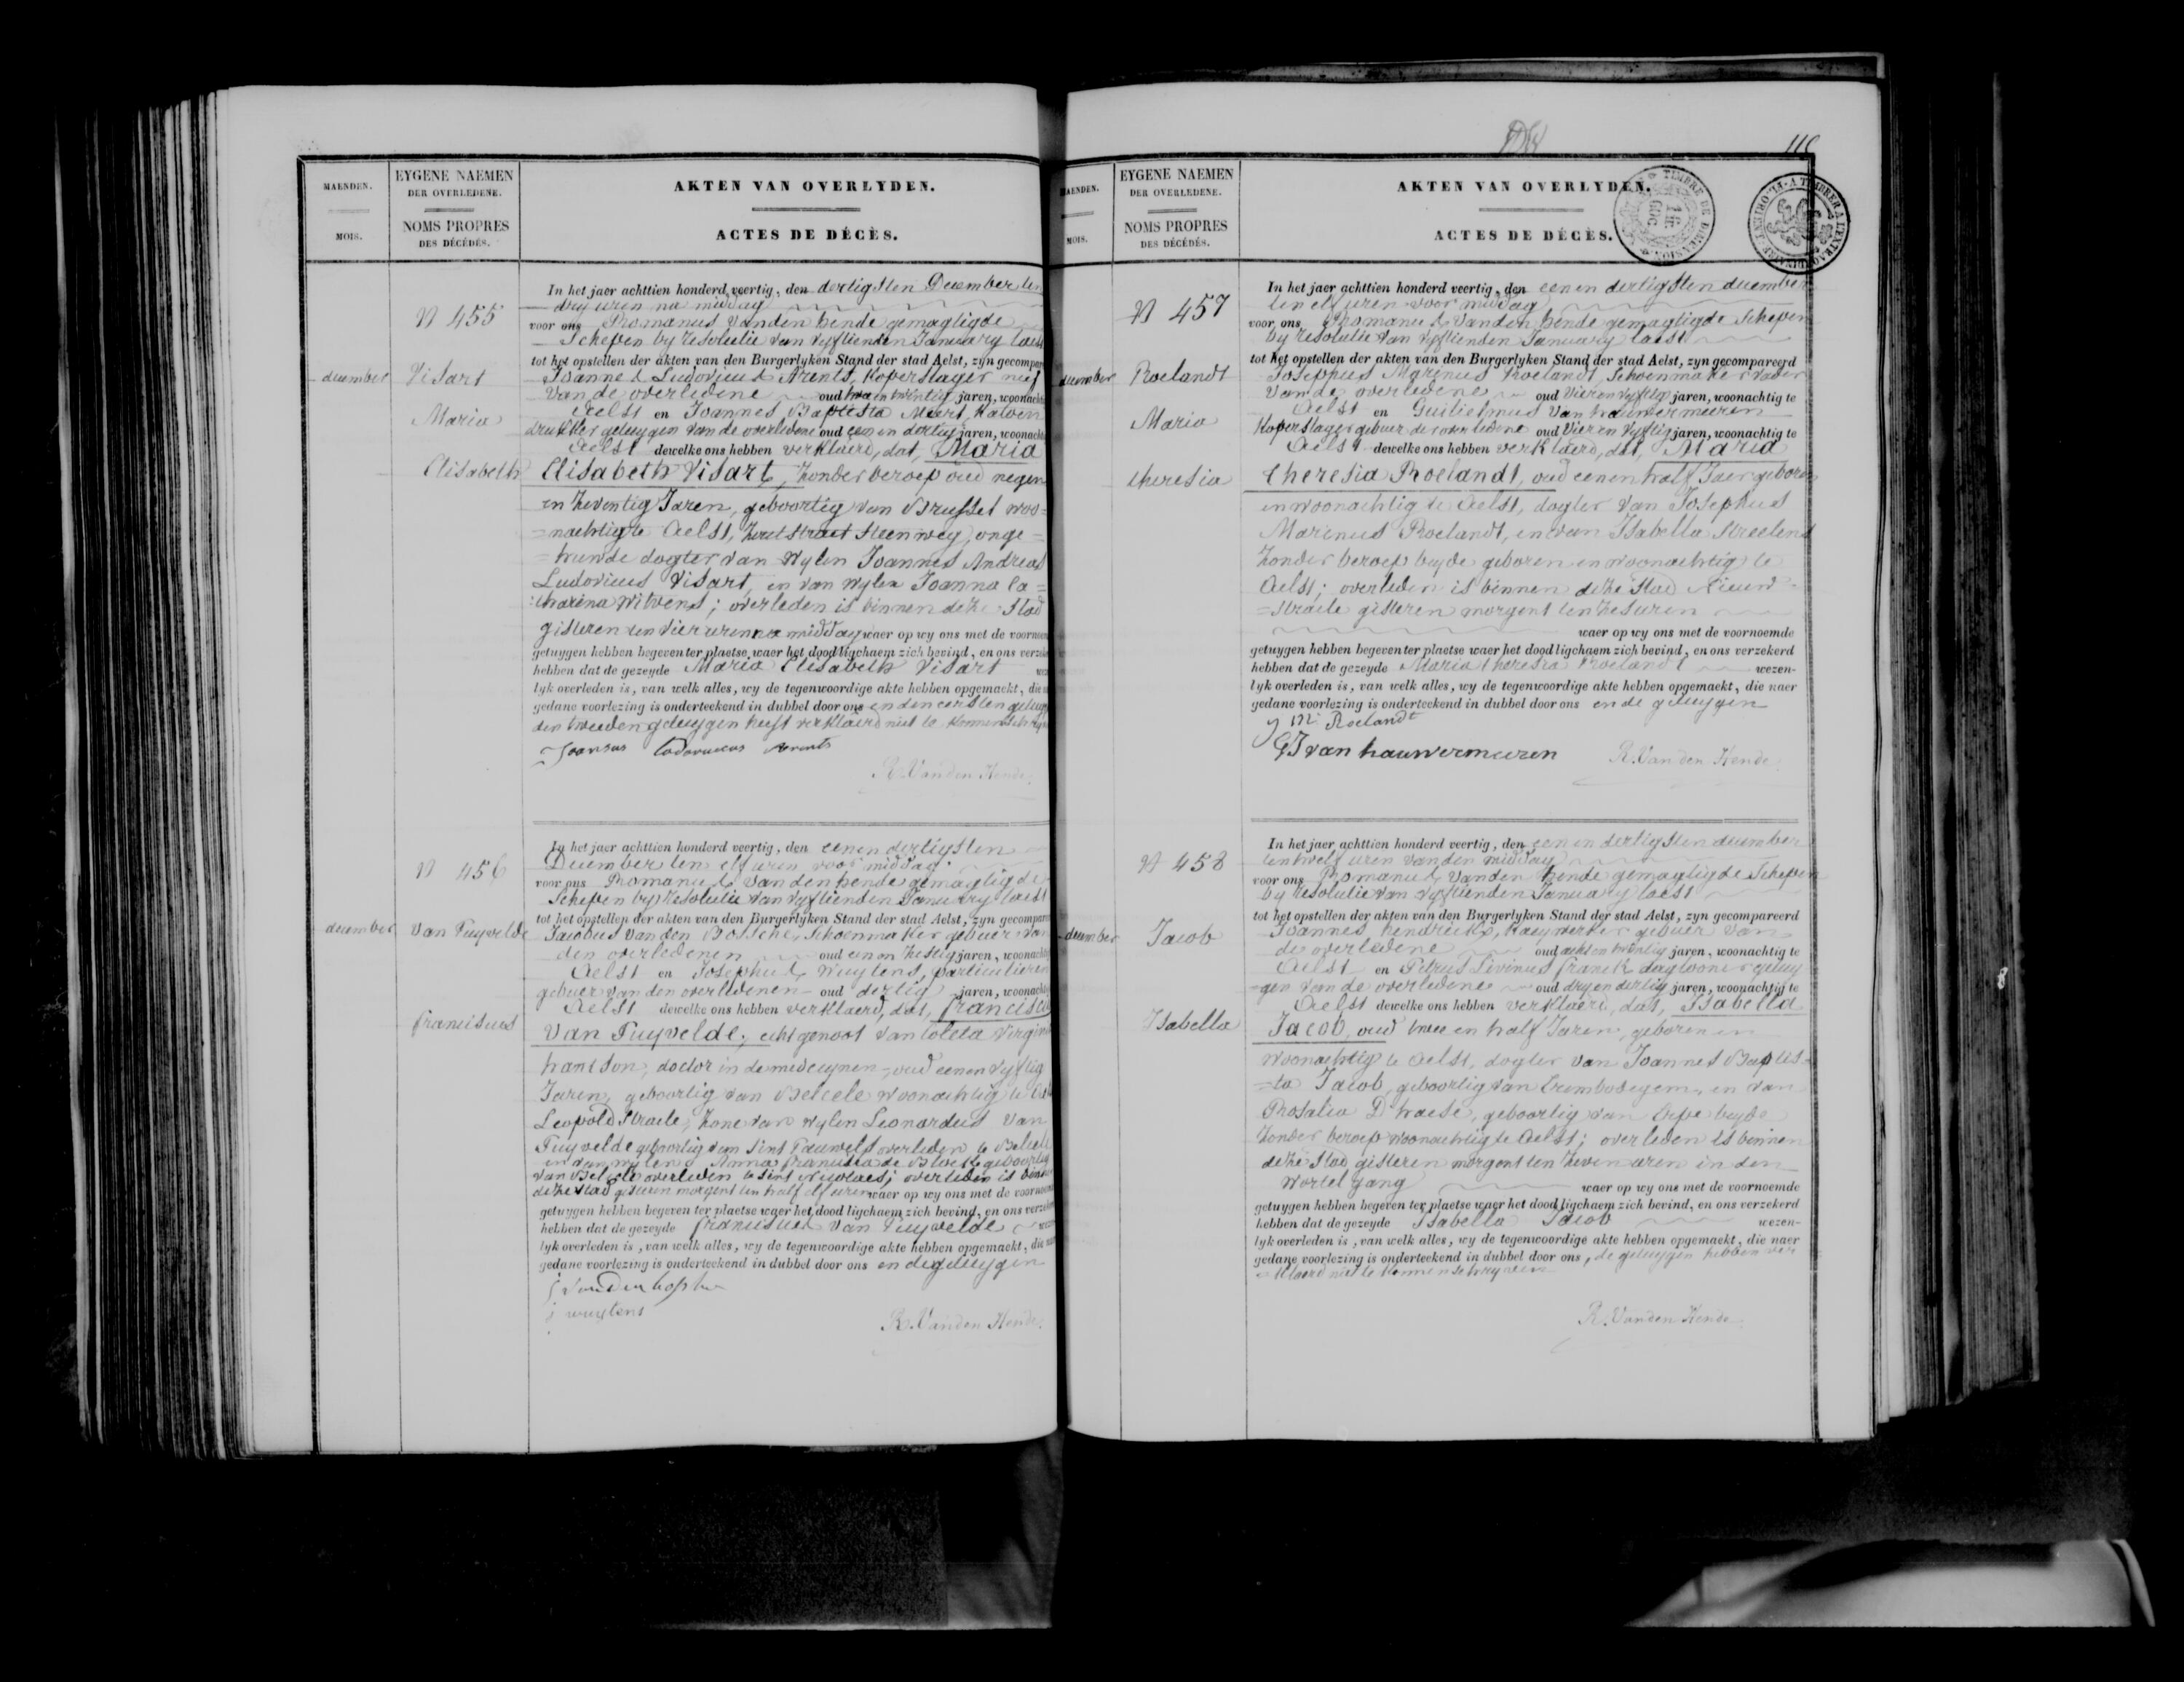 MAENDEN.
MOIS.
EYGENE NAEMEN
DER OVERLEDENE.
NOMS PROPRES
DES DÉCÉDÉS.
AKTEN VAN OVERLYDEN.
ACTES DE DÉCÈS.
N 455
december
Visart
Maria
Elisabeth
In het jaer achttien honderd veertig, den dertigsten December ten
dry uren na middag
voor ons Romanus Vanden hende gemagtigde
Schepen by resolutie van vyftienden January laest
tot het opstellen der akten van den Burgerlyken Stand der stad Aelst, zyn gecompar
Joannes Ludovicus Arents, Koperslager neef
van de overledene oud twee en twintig jaren, woonacht
Aelst en Joannes Baptista Meert, Katoen
drukker getuygen van de overledene oud een en dertig jaren, woonacht
Aelst dewelke ons hebben verklaerd, dat, Maria
Elisabeth Visart, zonder beroep oud negen
en zeventig Jaren, geboortig van Brussel woo=
=nachtig te Aelst, Zoutstraet Steenweg, onge=
=huwde dogter van wylen Joannes Andreas
Ludovicus Visart, en van wylen Joanna Ca=
=tharina Witvens; overleden is binnen deze Stad
gisteren ten vier uren na middag waer op wy ons met de voornoem
getuygen hebben begeven ter plaetse waer het dood ligchaem zich bevind, en ons verzek
hebben dat de gezeyde Maria Elisabeth Visart wez
lyk overleden is, van welk alles, wy de tegenwoordige akte hebben opgemaekt, die n
gedane voorlezing is onderteekend in dubbel door ons en den eersten getuyg
den tweeden getuygen heeft verklaerd niet te konnen schryv
Joannes Lodovicus Arents
R. Vanden Hende
N 456
december
Van Puyvelde
franciscus
In het jaer achttien honderd veertig, den eenen dertigsten
December ten elf uren voor middag
voor ons Romanus Vanden hende gemagtigde
Schepen by resolutie van vyftienden January laest
tot het opstellen der akten van den Burgerlyken Stand der stad Aelst, zyn gecompar
Jacobus Vanden Bossche, Schoenmaker gebuer van
den overledenen oud een en zestig jaren, woonacht
Aelst en Josephus Wuytens, particulieren
gebuer van den overledenen oud dertig jaren, woonacht
Aelst dewelke ons hebben verklaerd, dat, franciscus
Van Puyvelde, echtgenoot van Coleta Virgini
hanston, doctor in de medecynen, oud eenen vyftig
Jaren, geboortig van Belcele woonachtig te Aelst
Leopold Straete, zone van wylen Leonardus Van
Puyvelde geboortig van Sint Pauwels overleden te Belcele
en van wylen Anna francisca de Block geboortig
van Belcele overleden te Sint Nicolaes; overleden is binnen
deze stad gisteren morgent ten half elf uren waer op wy ons met de voornoem
getuygen hebben begeven ter plaetse waer het dood ligchaem zich bevind, en ons verzek
hebben dat de gezeyde franciscus Van Puyvelde wez
lyk overleden is, van welk alles, wy de tegenwoordige akte hebben opgemaekt, die naer
gedane voorlezing is onderteekend in dubbel door ons en de getuygen
j wuytens
R. Vanden Hende
116
TIMBRE DE DIMENSION
A TIMBRER A L'EXTRAORDINAIRE
MAENDEN.
MOIS.
EYGENE NAEMEN
DER OVERLEDENE.
NOMS PROPRES
DES DÉCÉDÉS.
AKTEN VAN OVERLYDEN.
ACTES DE DÉCÈS.
N 457
december
Roelandt
Maria
theresia
In het jaer achttien honderd veertig, den eenen dertigsten december
ten elf uren voor middag
voor ons Romanus Vanden hende gemagtigde Schepen
by resolutie van vyftienden January laest
tot het opstellen der akten van den Burgerlyken Stand der stad Aelst, zyn gecompareerd
Josephus Marinus Roelandt, Schoenmaker vader
van de overledene oud vier en vyftig jaren, woonachtig te
Aelst en Guilielmus Van hauwermeeren
Koperslager gebuer der overledene oud vier en vyftig jaren, woonachtig te
Aelst dewelke ons hebben verklaerd, dat, Maria
theresia Roelandt, oud een en half Jaer geboren
en woonachtig te Aelst, dogter van Josephus
Marinus Roelandt, en van Isabella Streelens
zonder beroep beyde geboren en woonachtig te
Aelst; overleden is binnen deze Stad Nieuw=
=straete gisteren morgent ten zes uren
waer op wy ons met de voornoemde
getuygen hebben begeven ter plaetse waer het dood ligchaem zich bevind, en ons verzekerd
hebben dat de gezeyde Maria theresia Roelandt wezen-
lyk overleden is, van welk alles, wy de tegenwoordige akte hebben opgemaekt, die naer
gedane voorlezing is onderteekend in dubbel door ons en de getuygen
J M Roelandt
GJ van hauwermeeren
R. Vanden Hende
N 458
december
Jacob
Isabella
In het jaer achttien honderd veertig, den eenen dertigsten december
ten twelf uren van den middag
voor ons Romanus Vanden hende gemagtigde Schepen
by resolutie van vyftienden January laest
tot het opstellen der akten van den Burgerlyken Stand der stad Aelst, zyn gecompareerd
Joannes hendrickx, Kaeywerker gebuer van
de overledene oud acht en twintig jaren, woonachtig te
Aelst en Petrus Livinus franck daglooner getuy
=gen van de overledene oud dry en dertig jaren, woonachtig te
Aelst dewelke ons hebben verklaerd, dat, Isabella
Jacob, oud twee en half Jaren, geboren en
woonachtig te Aelst, dogter van Joannes Baptis=
=ta Jacob, geboortig van Erembodegem, en van
Rosalia D'haese, geboortig van Erpe beyde
zonder beroep woonachtig te Aelst; overleden is binnen
deze Stad gisteren morgent ten zeven uren in den
Wortel gang waer op wy ons met de voornoemde
getuygen hebben begeven ter plaetse waer het dood ligchaem zich bevind, en ons verzekerd
hebben dat de gezeyde Isabella Jacob wezen-
lyk overleden is, van welk alles, wy de tegenwoordige akte hebben opgemaekt, die naer
gedane voorlezing is onderteekend in dubbel door ons, de getuygen hebben ver
=klaerd niet te konnen schryven
R. Vanden Hende